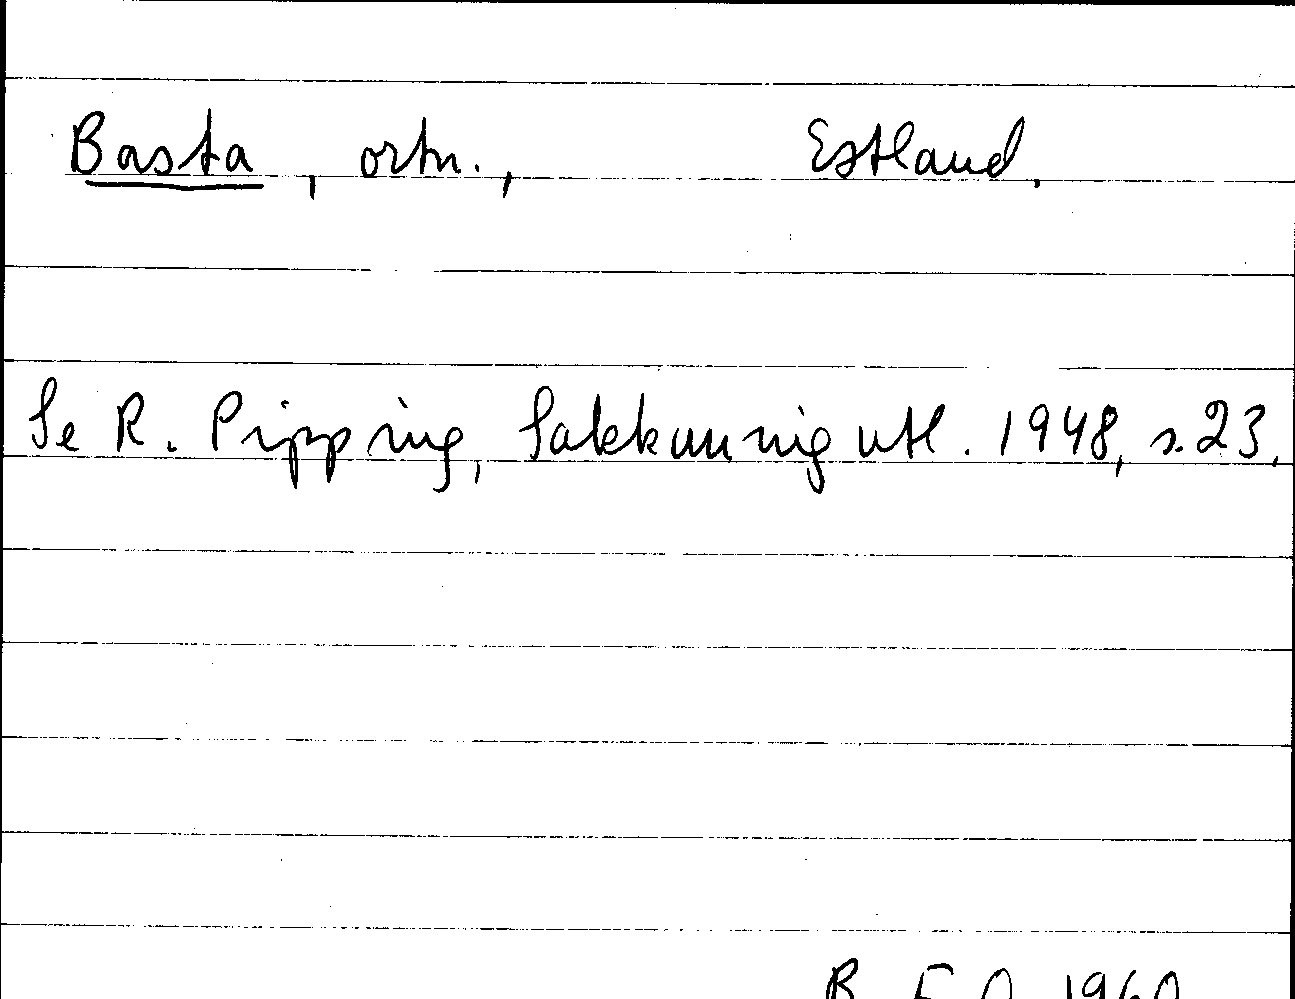 Basta, ortn., Estland.
Se R. Pipping, Sakkunnigutl. 1948, s. 23.
1960